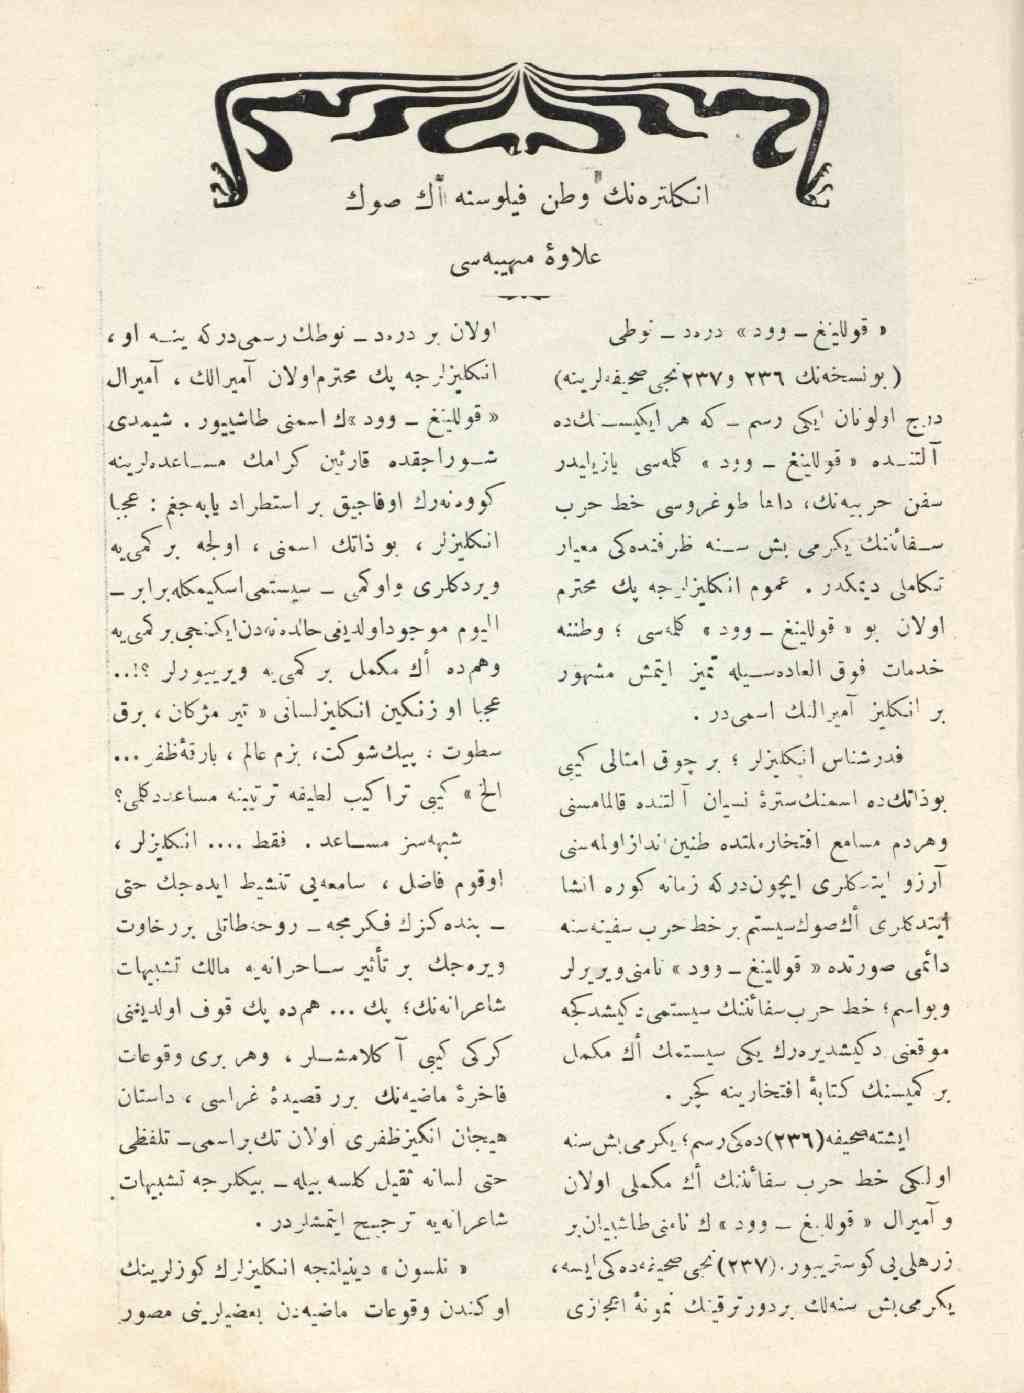 انكلتره‌نك وطن فيلوسنه اڭ صوك
علاوهٔ مهيبه‌سی
« قوللينغ ـ وود» دره‌د ـ نوطی
(بونسخه‌نك ٢٣٦ و٢٣٧نجی صحيفه‌لرينه)
درج اولونان ايكی رسم ـ كه هر ايكيسـنك‌ده
آلتنـده « قوللينغ ـ وود » كلمه‌سی يازيليدر
سفن حربيه‌نك، داها طوغروسی خط حرب
سـفائننك يكرمی بش سـنه ظرفنده‌كی معيار
تكاملی ديمكدر . عموم انكليزلرجه پك محترم
اولان بو « قوللينغ ـ وود » كلمه‌سی ؛ وطننه
خدمات فوق العاده‌سـيله تميز ايتمش مشهور
بر انكليز آميرالنك اسمی‌در .
قدرشناس انكليزلر ؛ بر چوق امثالی كبی
بوذاتك‌ده اسمنك‌سترهٔ نسيان آلتنده قالمامسنی
وهردم مسامع افتخارملتده طنين‌اندازاولمه‌سنی
آرزو ايتدكلری ايچون‌دركه زمانه كوره انشا
ايتدكلری اڭ‌صوك‌سيستم برخط‌حرب سفينه‌سنه
دائمی صورتده « قوللينغ ـ وود » نامنی‌ويريرلر
وبواسم؛ خط حرب‌سفائننك سيستمی؛ دكيشدكجه
موقعنی دكيشديره‌رك يكی سيستمك اڭ مكمل
بر كميسنك كتابهٔ افتخارينه كچر .
ايشته‌صحيفه(٢٣٦)ده‌كی‌رسم؛ يكرمی‌بش‌سنه
اولكی خط حرب سفائننك اڭ مكملی اولان
و آميرال « قوللينغ ـ وود »ك نامنی‌طاشييان‌بر
زرهلی‌يی‌كوستريیور.(٢٣٧)نجی‌صحيفه‌ده‌كی‌ايسه،
يكرمی‌بش سنه‌لك بردورترقينك نمونهٔ اعجازی
اولان بر دره‌د ـ نوطك رسمی‌دركه ينـه او ،
انكليزلرجه پك محترم‌اولان آميرالك ، آميرال
« قوللينغ ـ وود »ك اسمنی طاشييور . شيمدی
شـوراجقده قارئين كرامك مسـاعده‌لرينه
كووه‌نه‌رك اوفاجيق بر استطراد ياپه‌جغم : عجبا
انكليزلر ، بو ذاتك اسمنی ، اولجه بر كمی‌يه
ويردكلری واوكمی ـ سيستمی‌اسكيمكله‌برابر ـ
اليوم موجوداولديغی‌حالده‌نه‌دن‌ايكنجی‌بركمی‌يه
وهم‌ده اڭ مكمل بر كمی‌يه ويريیورلر ؟!..
عجبا او زنكين انكليزلسانی « تير مژكان ، برق
سطوت ، پيك‌شوكت، بزم عالم ، بارقهٔ‌ظفر ...
الخ » كبی تراكيب لطيفه ترتيبنه مساعددكلمی؟
شبهه‌سز مسـاعد . فقط .... انكليزلر ،
اوقوم فاضل ، سامعه‌يی تنشيط ايده‌جك حتی
ـ بنده‌كزك فكرمجه ـ روحه‌طاتلی بررخاوت
ويره‌جك بر تأثير سـاحرانه‌يه مالك تشبيهات
شاعرانه‌نك؛ پك ... هم‌ده پك قوف اولديغنی
كركی كبی آكلامشـلر ، وهر بری وقوعات
فاخرهٔ ماضيه‌نك برر قصيدهٔ غراسی ، داستان
هيجان انكيزظفری اولان تك‌براسمی ـ تلفظی
حتی لسانه ثقيل كلسه بيله ـ بيكلرجه تشبيهات
شاعرانه‌يه ترجيح ايتمشلردر .
« نلسون » دينيلنجه انكليزلرك كوزلرينك
اوكندن وقوعات ماضيه‌دن بعضيلرينی مصور